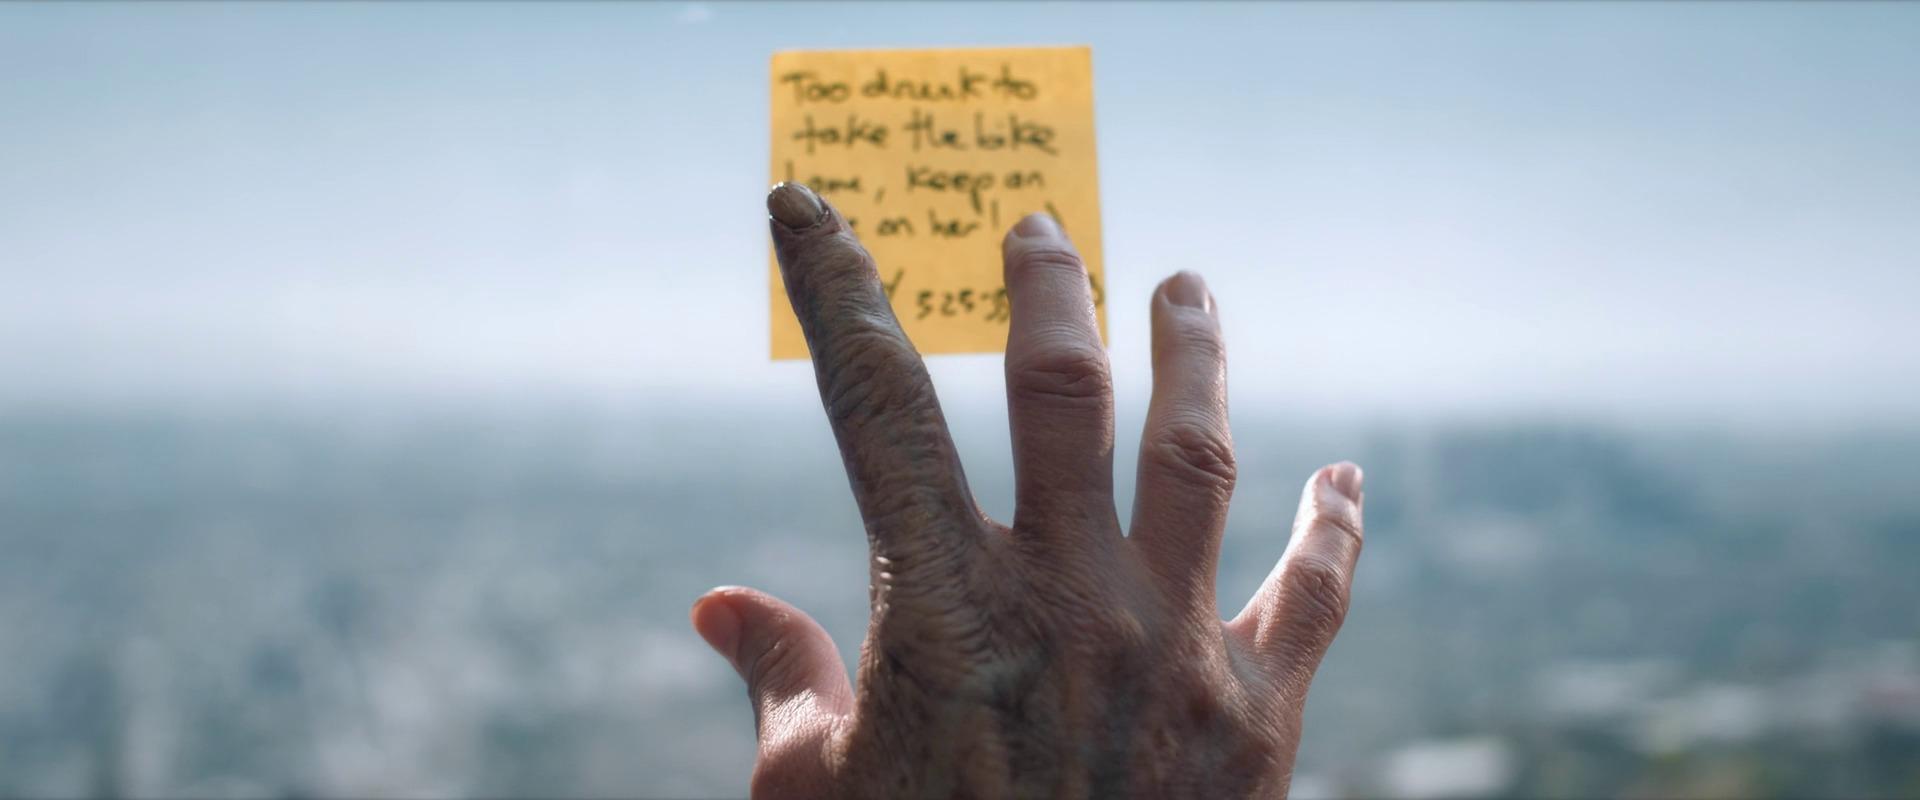 Too drunk to
take the bike
home, Keep an
on her!
525-